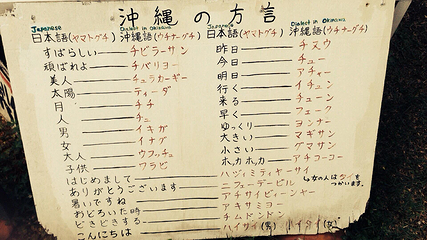 沖縄の方言
Japanese Dialect in Okinawa Japanese Dialect in Okinawa
日本語(ヤマトグチ) 沖縄語(ウチナーグチ) 日本語(ヤマトグチ) 沖縄語(ウチナーグチ)
すばらしい チビラーサン
頑ばれよ チバリヨー
美人 チュラカーギー
太陽 ティーダ
月 チチ
人 チュ
男 イキガ
女 イナグ
大人 ウフッチュ
子供 ワラビ
昨日 チヌウ
今日 チュー
明日 アチャー
行く イチュン
来る チューン
早く フェーク
ゆっくり ヨンナー
大きい マギサン
小さい グマサン
ホカホカ アチコーコー
はじめまして ハヅィミティヤーサイ
ありがとうございます ニフェーデービル
暑いですね アチサイビーンヤー
おどろいた時 アキサミヨー
どきどきする チムドンドン
こんにちは ハイサイ(男) ハイタイ(女)
↳女の人はタイをつかいます。